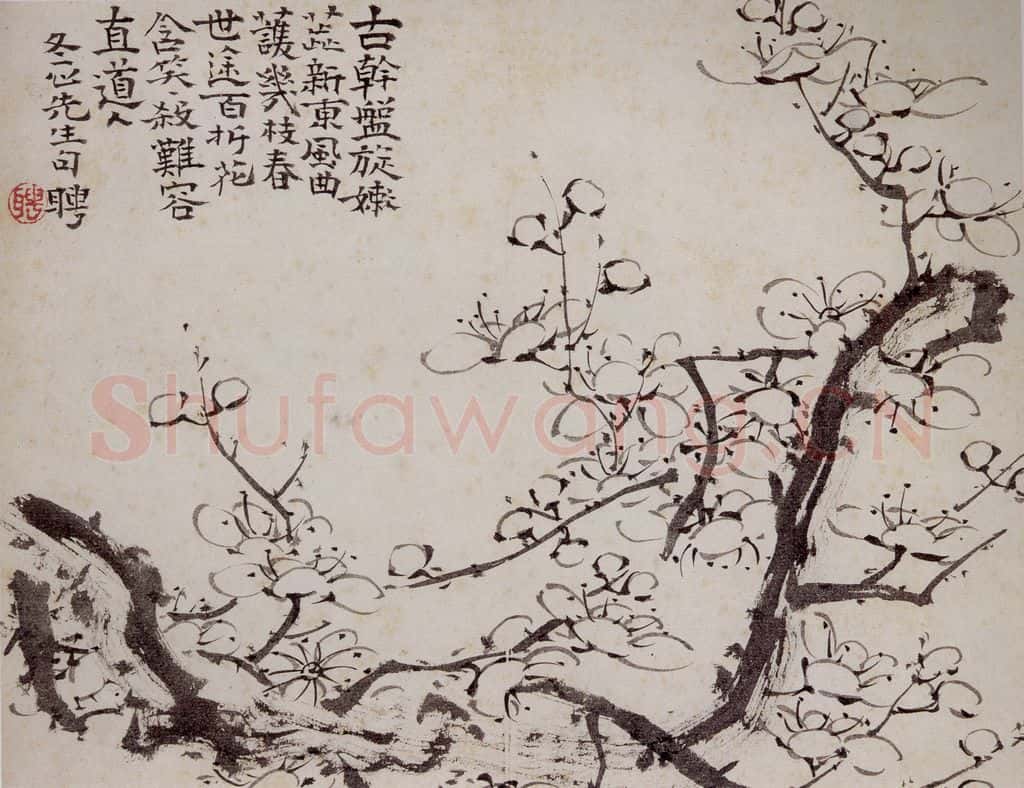 古幹盤旋嫩
蕋新東風曲
護幾枝春
世途百折花
含笑〻殺難容
直道人
冬心先生句 聘
聘
Shufawang.CN